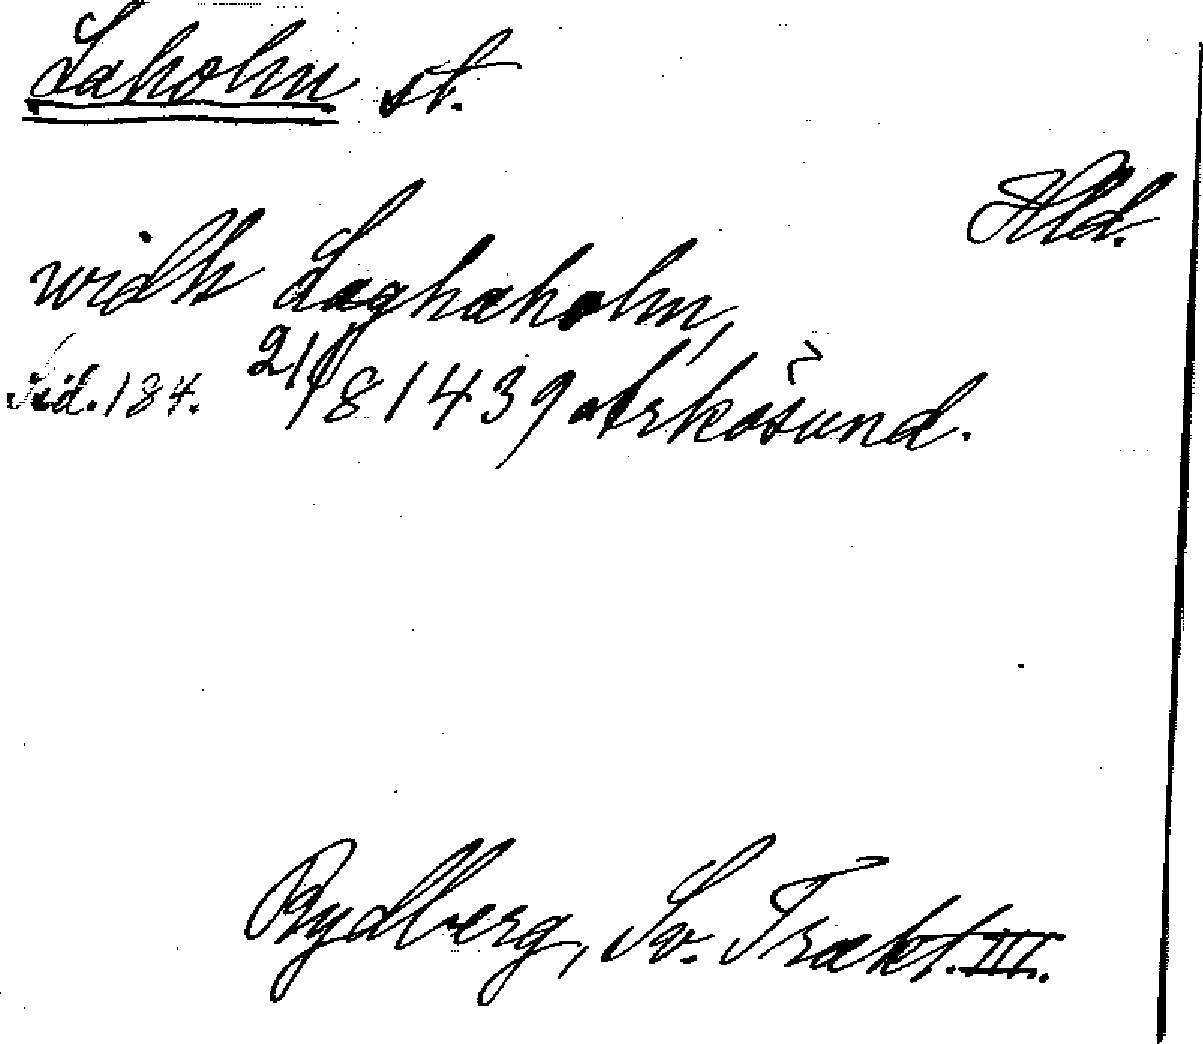 Laholm st.
Hld.
widh Laghaholm,
Sid. 184. 21/8 1439 Arkösund.
Rydberg, Sv. Trakt. III.